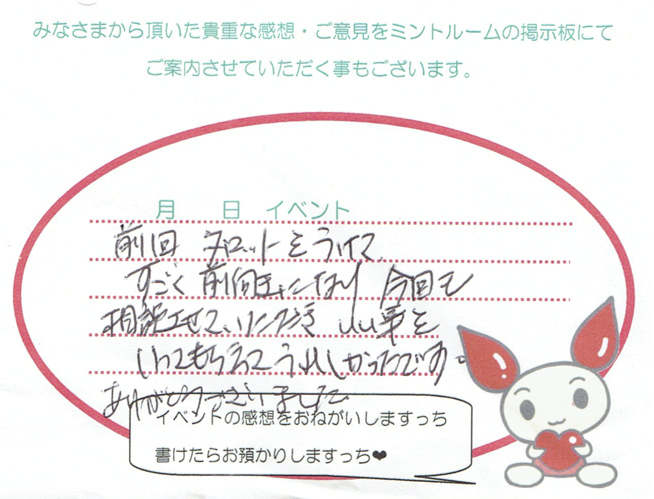 みなさまから頂いた貴重な感想・ご意見をミントルームの掲示板にて
ご案内させていただく事もございます。
月 日 イベント
前回 タロットをうけて
すごく前向きになり 今回も
相談させていただき いい事を
いってもらえてうれしかったです。
ありがとうございました
イベントの感想をおねがいしますっち
書けたらお預かりしますっち❤